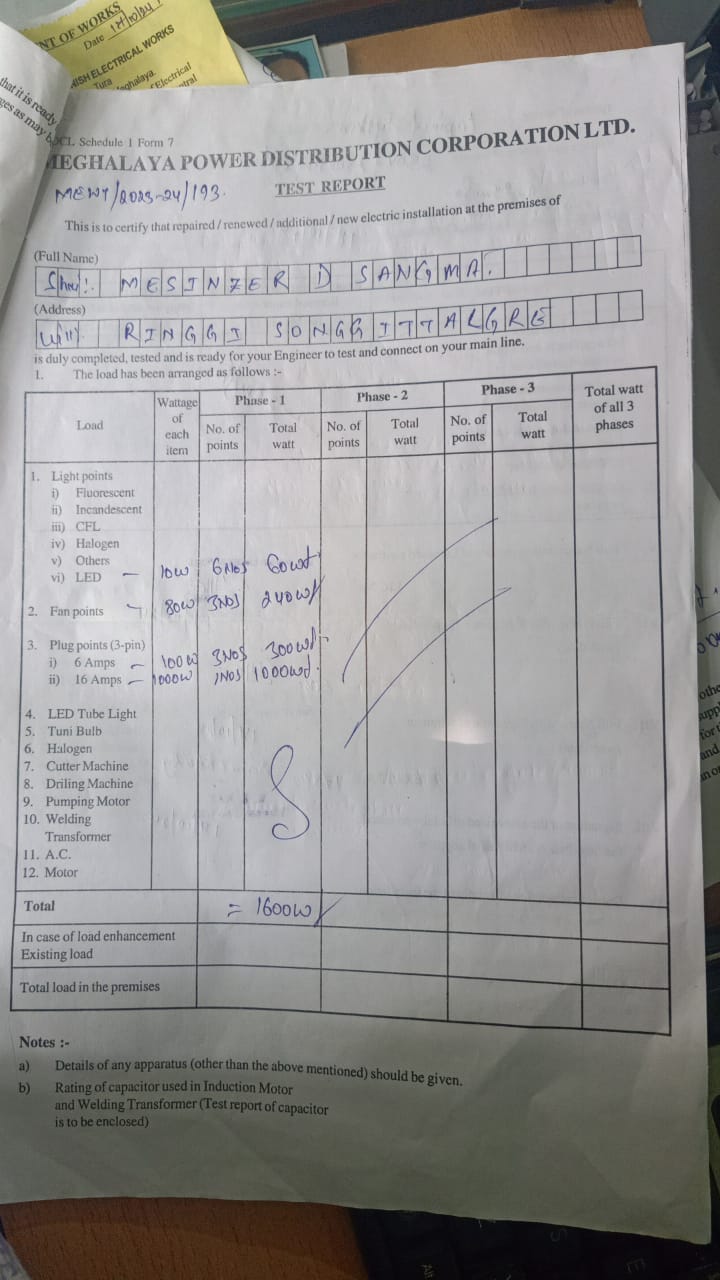 NT OF WORKS
Date 17/10/24
NISH ELECTRICAL WORKS
Tura
Electrical
that it is ready
ges as may b
CL Schedule 1 Form 7
MEGHALAYA POWER DISTRIBUTION CORPORATION LTD.
MEWT/2023-24/193.
TEST REPORT
This is to certify that repaired / renewed / additional / new electric installation at the premises of
(Full Name)
Shri. MESINZER D SANGMA.
(Address)
Vill. RINGGI SONGGITTALGRE
is duly completed, tested and is ready for your Engineer to test and connect on your main line.
1. The load has been arranged as follows :-
Load Wattage of each item Phase - 1 Phase - 2 Phase - 3 Total watt of all 3 phases
No. of points Total watt No. of points Total watt No. of points Total watt
1. Light points
i) Fluorescent
ii) Incandescent
iii) CFL
iv) Halogen
v) Others
vi) LED – 10W 6NOS 60wt
2. Fan points 80W 3NOS 240W/
3. Plug points (3-pin)
i) 6 Amps – 100W 3NOS 300wt
ii) 16 Amps – 1000W 1NOS 1000wt.
4. LED Tube Light
5. Tuni Bulb
6. Halogen
7. Cutter Machine
8. Driling Machine
9. Pumping Motor
10. Welding
Transformer
11. A.C.
12. Motor
Total = 1600W/
In case of load enhancement
Existing load
Total load in the premises
Notes :-
a) Details of any apparatus (other than the above mentioned) should be given.
b) Rating of capacitor used in Induction Motor
and Welding Transformer (Test report of capacitor
is to be enclosed)